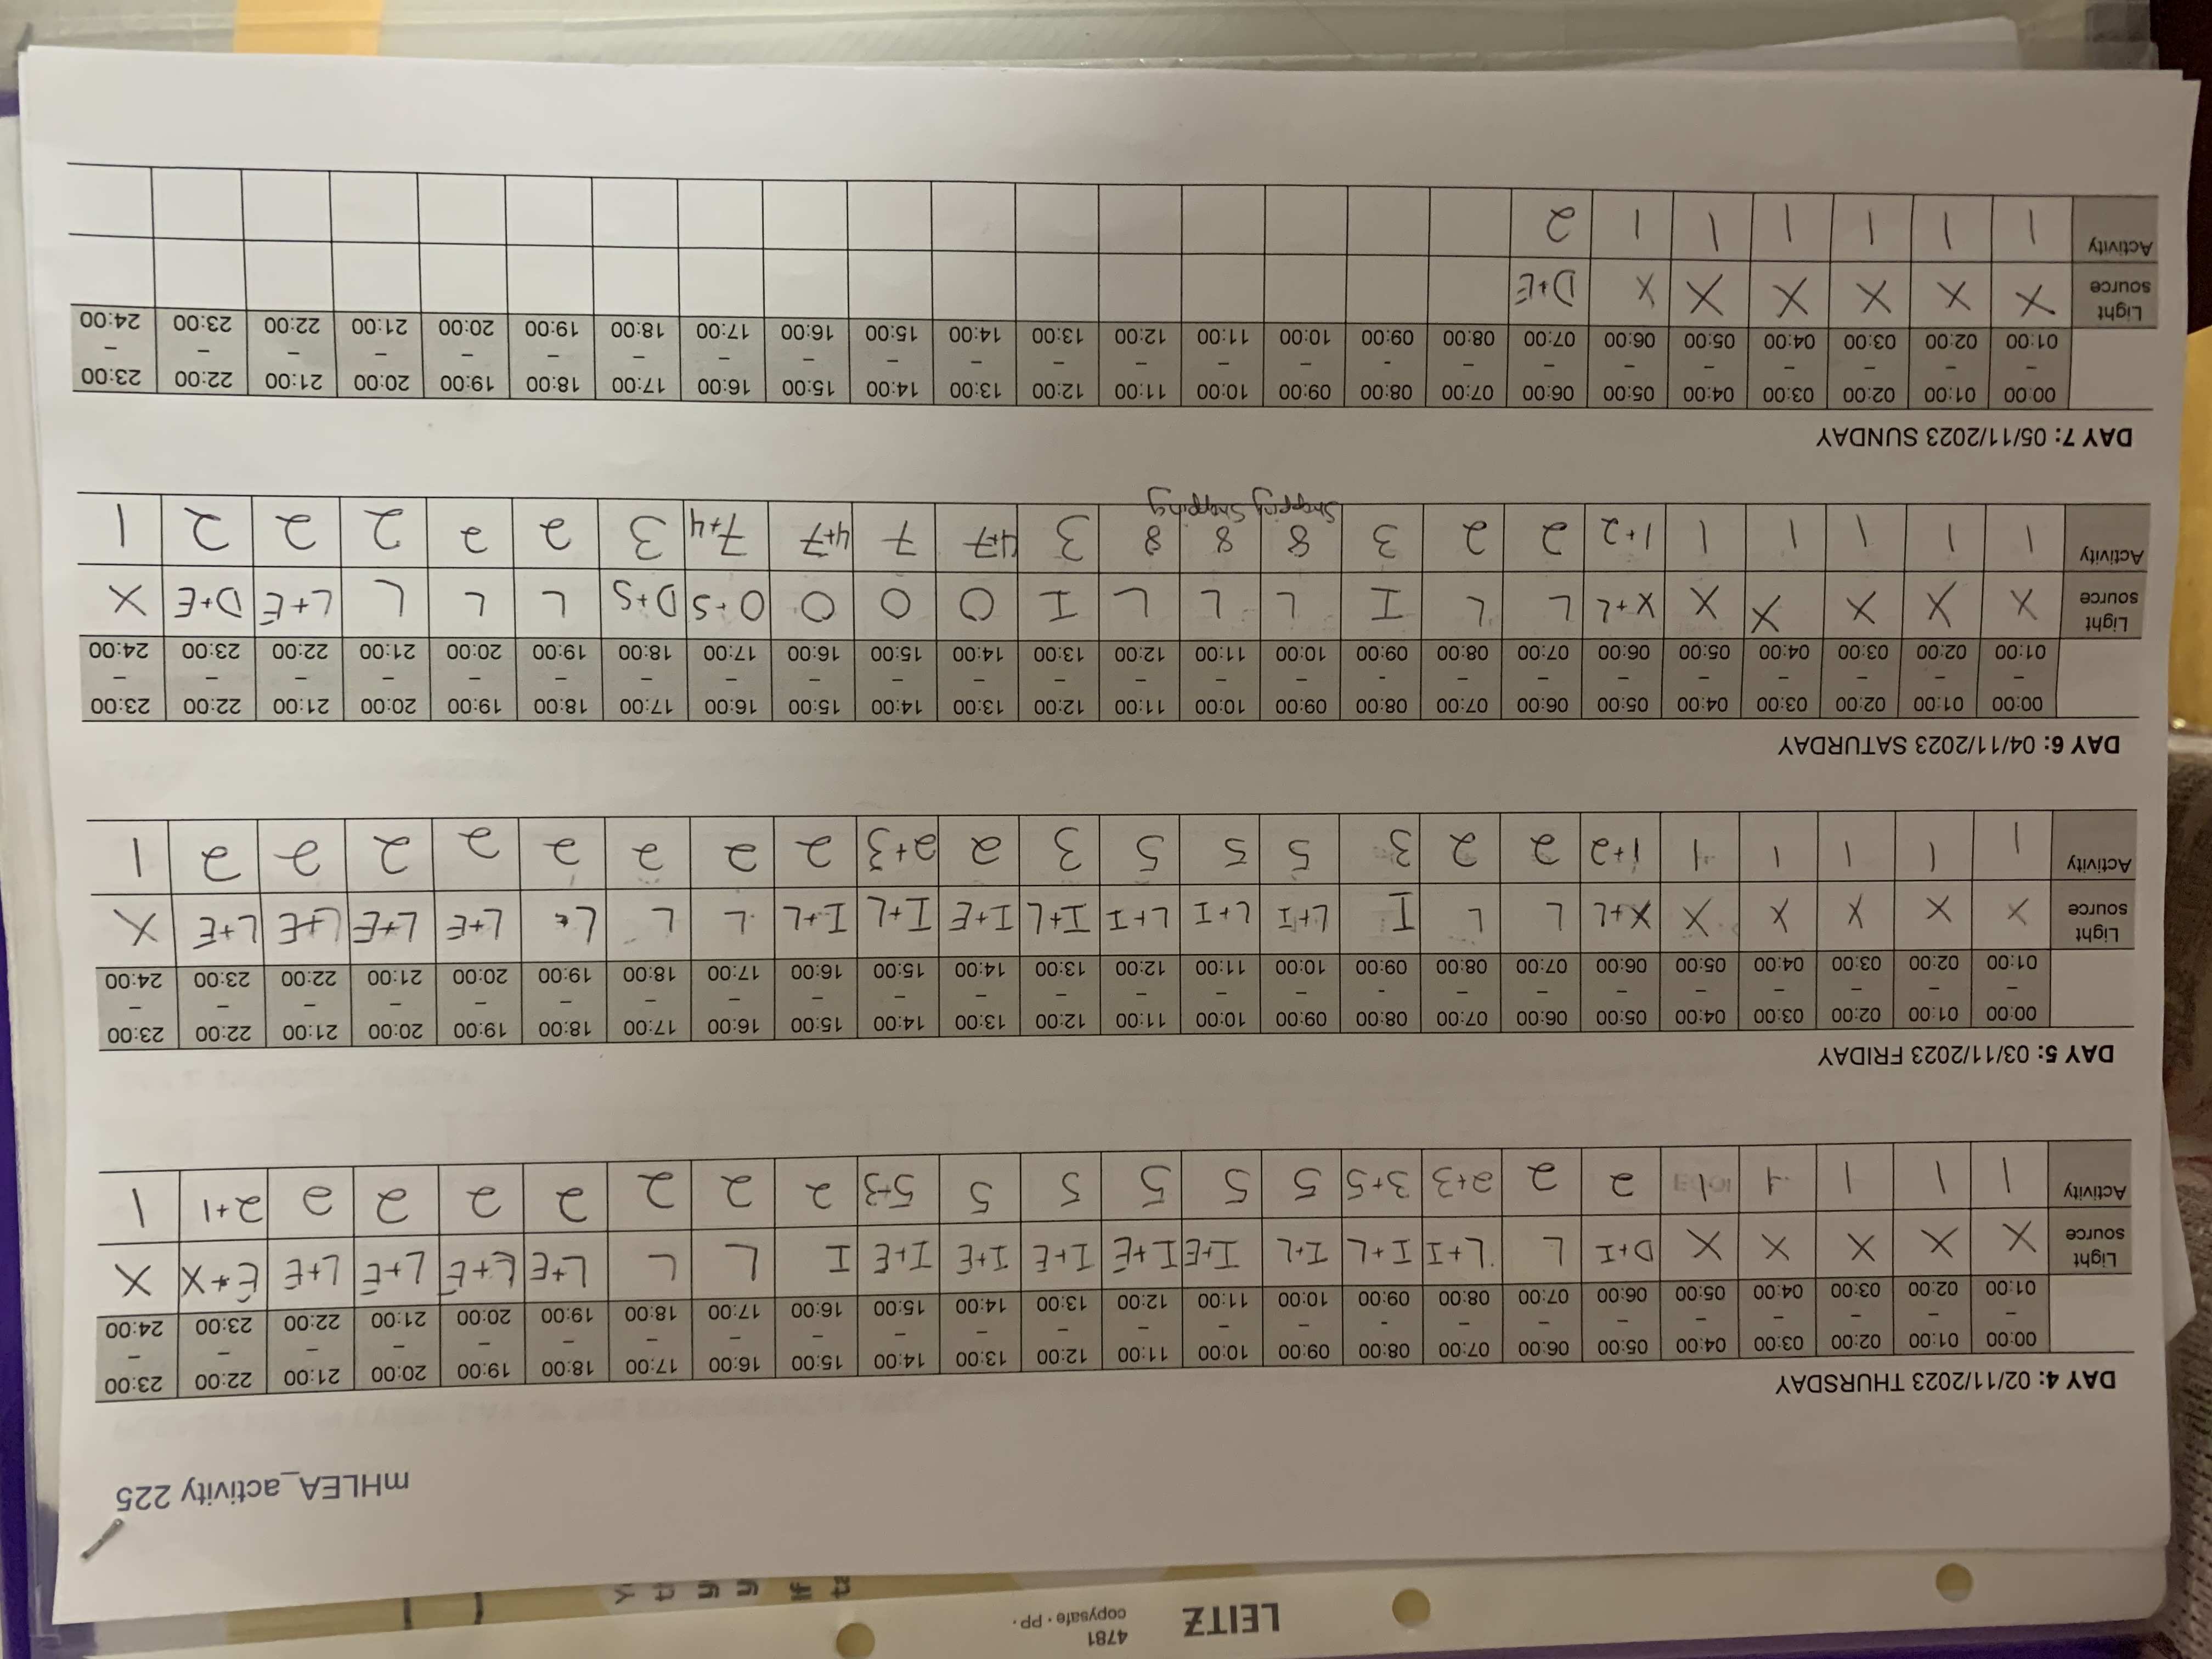 LEITZ 4781
copysafe · PP.
mHLEA_activity 225
DAY 4: 02/11/2023 THURSDAY
00:00 – 01:00 01:00 – 02:00 02:00 – 03:00 03:00 – 04:00 04:00 – 05:00 05:00 – 06:00 06:00 – 07:00 07:00 – 08:00 08:00 - 09:00 09:00 – 10:00 10:00 – 11:00 11:00 – 12:00 12:00 – 13:00 13:00 – 14:00 14:00 – 15:00 15:00 – 16:00 16:00 – 17:00 17:00 – 18:00 18:00 – 19:00 19:00 – 20:00 20:00 – 21:00 21:00 – 22:00 22:00 – 23:00 23:00 – 24:00
Light source X X X X X D+I L L+I I+L I+L I+E I+E I+E I+E I+E I L L L+E L+E L+E L+E E+X X
Activity 1 1 1 1 1 2 2 2+3 3+5 5 5 5 5 5 5+3 2 2 2 2 2 2 2 2+1 1
DAY 5: 03/11/2023 FRIDAY
00:00 – 01:00 01:00 – 02:00 02:00 – 03:00 03:00 – 04:00 04:00 – 05:00 05:00 – 06:00 06:00 – 07:00 07:00 – 08:00 08:00 - 09:00 09:00 – 10:00 10:00 – 11:00 11:00 – 12:00 12:00 – 13:00 13:00 – 14:00 14:00 – 15:00 15:00 – 16:00 16:00 – 17:00 17:00 – 18:00 18:00 – 19:00 19:00 – 20:00 20:00 – 21:00 21:00 – 22:00 22:00 – 23:00 23:00 – 24:00
Light source X X X X X X+L L L I L+I L+I L+I I+L I+E I+L I+L L L L+ L+E L+E L+E L+E X
Activity 1 1 1 1 1 1+2 2 2 3 5 5 5 3 2 2+3 2 2 2 2 2 2 2 2 1
DAY 6: 04/11/2023 SATURDAY
00:00 – 01:00 01:00 – 02:00 02:00 – 03:00 03:00 – 04:00 04:00 – 05:00 05:00 – 06:00 06:00 – 07:00 07:00 – 08:00 08:00 - 09:00 09:00 – 10:00 10:00 – 11:00 11:00 – 12:00 12:00 – 13:00 13:00 – 14:00 14:00 – 15:00 15:00 – 16:00 16:00 – 17:00 17:00 – 18:00 18:00 – 19:00 19:00 – 20:00 20:00 – 21:00 21:00 – 22:00 22:00 – 23:00 23:00 – 24:00
Light source X X X X X X+L L L I L L L I O O O O+S D+S L L L L+E D+E X
Activity 1 1 1 1 1 1+2 2 2 3 8 8 8 3 4+7 7 4+7 7+4 3 2 2 2 2 2 1
Shopping Shopping
DAY 7: 05/11/2023 SUNDAY
00:00 – 01:00 01:00 – 02:00 02:00 – 03:00 03:00 – 04:00 04:00 – 05:00 05:00 – 06:00 06:00 – 07:00 07:00 – 08:00 08:00 - 09:00 09:00 – 10:00 10:00 – 11:00 11:00 – 12:00 12:00 – 13:00 13:00 – 14:00 14:00 – 15:00 15:00 – 16:00 16:00 – 17:00 17:00 – 18:00 18:00 – 19:00 19:00 – 20:00 20:00 – 21:00 21:00 – 22:00 22:00 – 23:00 23:00 – 24:00
Light source X X X X X X D+E
Activity 1 1 1 1 1 1 2